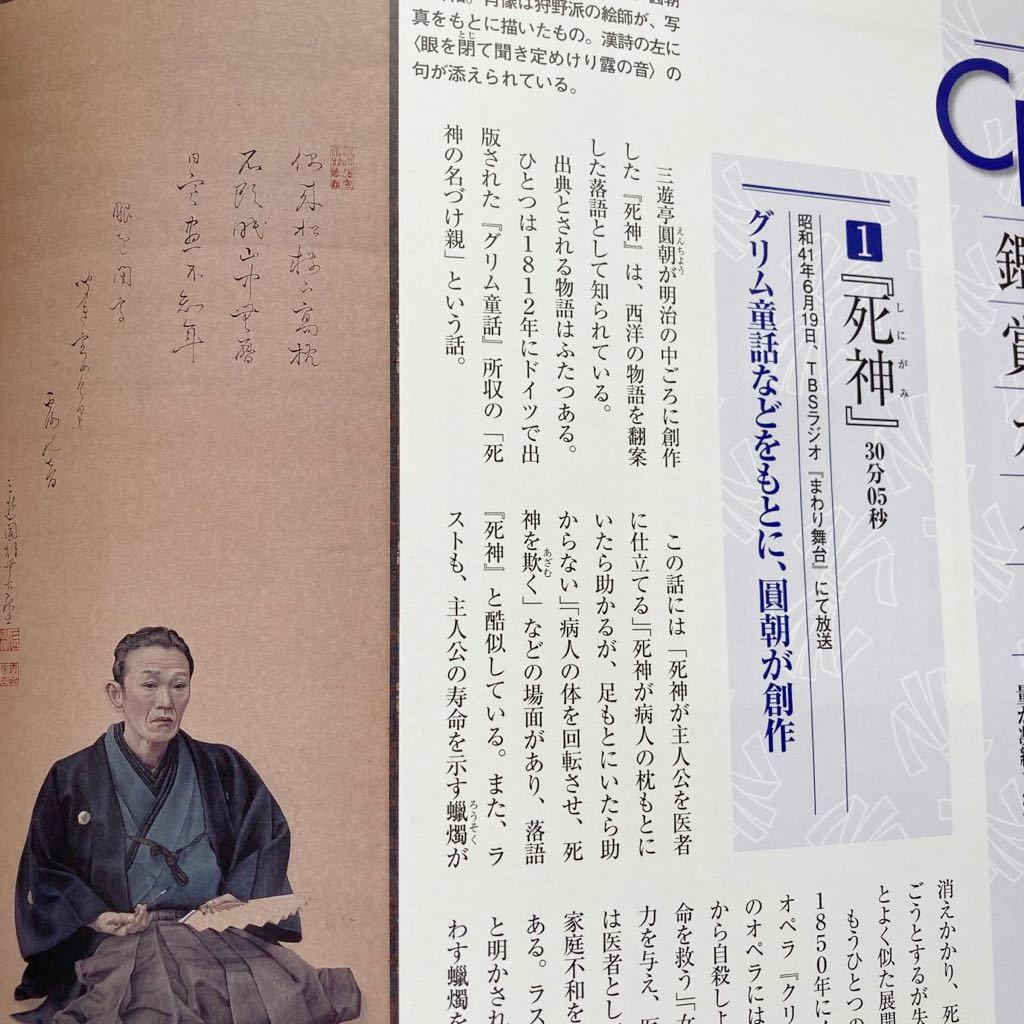 鑑賞ガイド
1『死神』30分05秒
しにがみ
昭和41年6月19日、TBSラジオ『まわり舞台』にて放送
グリム童話などをもとに、圓朝が創作
三遊亭圓朝が明治の中ごろに創作
えんちょう
した『死神』は、西洋の物語を翻案
した落語として知られている。
出典とされる物語はふたつある。
ひとつは1812年にドイツで出
版された『グリム童話』所収の「死
神の名づけ親」という話。
この話には「死神が主人公を医者
に仕立てる」「死神が病人の枕もとに
いたら助かるが、足もとにいたら助
からない」「病人の体を回転させ、死
神を欺く」などの場面があり、落語
あざむ
『死神』と酷似している。また、ラ
ストも、主人公の寿命を示す蠟燭が
ろうそく
消えかかり、死
ごうとするが失
とよく似た展開
もうひとつの
1850年に
オペラ『クリ
のオペラには
から自殺しよ
命を救う」「女
力を与え、医
は医者とし
家庭不和を
ある。ラス
と明かされ
わす蠟燭を
肖像は狩野派の絵師が、写
真をもとに描いたもの。漢詩の左に
〈眼を閉て聞き定めけり露の音〉の
とじ
句が添えられている。
偶来松樹下高枕
石頭眠山中無暦
日寒盡不知年
眼を閉て
露の音